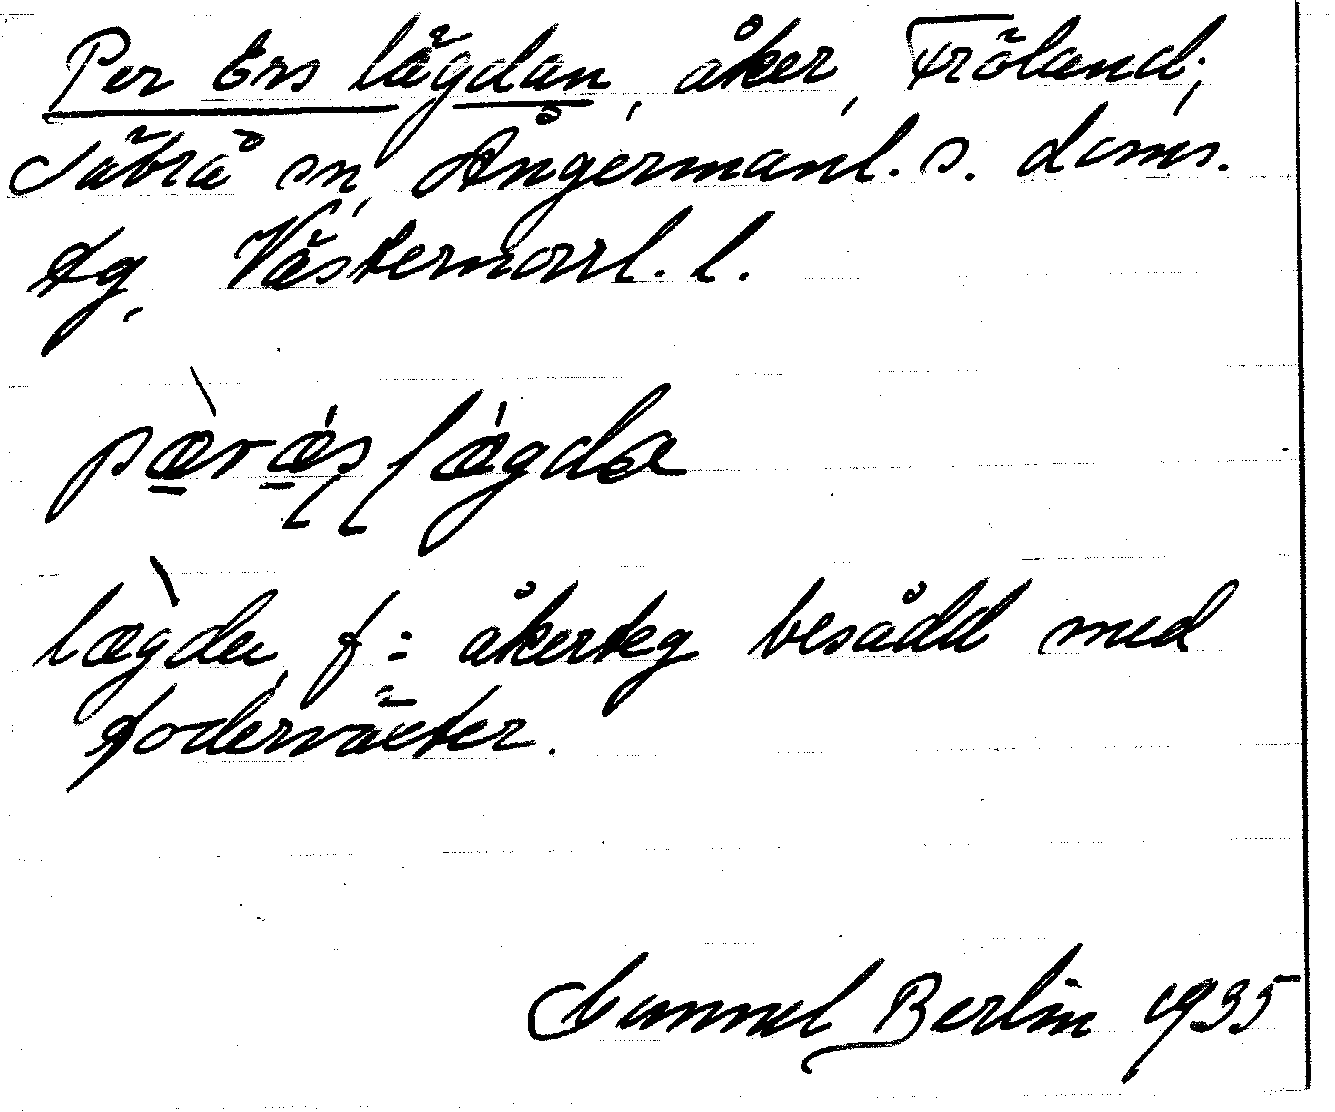 Per Ers lägdan, åker, Fröland,
Säbrå sn, Ångermanl. s. doms.
tg, Västernorrl. l.
pæræs lægda
lægda, f: åkerteg besådd med
foderväxter.
Gunnel Berlin 1935